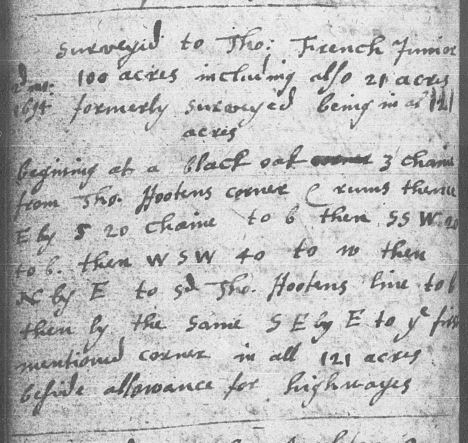 Surveyid to Tho: French Junior
2d mo: 100 acres including also 21 acres
1694 formerly Surveyed being in all 121
acres
begining at a black oak corner 3 chaine
from Tho. Hootens corner & runs thence
E by S 20 chaine to b then SSW 20
to b. then WSW 40 to w then
N by E to sd Tho. Hootens line to b
then by the same SE by E to ye first
mentioned corner in all 121 acres
beside allowance for highwayes